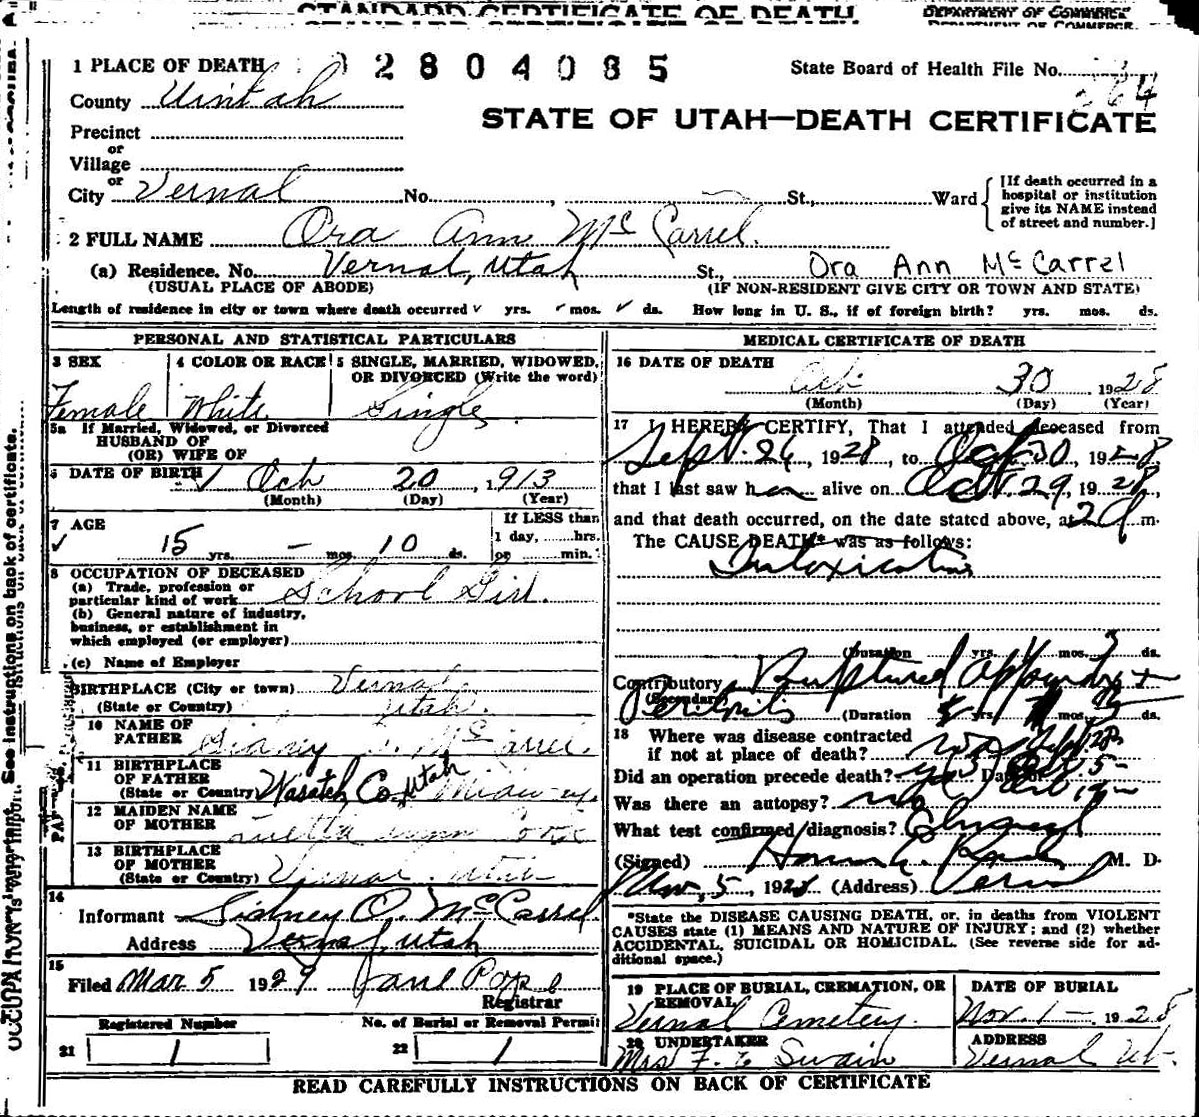 STANDARD CERTIFICATE OF DEATH
DEPARTMENT OF COMMERCE
1 PLACE OF DEATH 2804085 State Board of Health File No. 264
County Uintah
STATE OF UTAH—DEATH CERTIFICATE
Precinct
or
Village
or
City Vernal No. , St., Ward
[If death occurred in a hospital or institution give its NAME instead of street and number.]
2 FULL NAME Ora Ann McCarrel.
(a) Residence. No. Vernal, Utah St., Ora Ann McCarrel
(USUAL PLACE OF ABODE) (IF NON-RESIDENT GIVE CITY OR TOWN AND STATE)
Length of residence in city or town where death occurred yrs. mos. ds. How long in U. S., if of foreign birth? yrs. mos. ds.
PERSONAL AND STATISTICAL PARTICULARS
3 SEX 4 COLOR OR RACE 5 SINGLE, MARRIED, WIDOWED, OR DIVORCED (Write the word)
Female White Single
5a If Married, Widowed, or Divorced
HUSBAND OF
(OR) WIFE OF
6 DATE OF BIRTH Oct 20, 1913
(Month) (Day) (Year)
7 AGE If LESS than
1 day, hrs.
15 yrs. — mos. 10 ds. or min.
8 OCCUPATION OF DECEASED
(a) Trade, profession or
particular kind of work School Girl.
(b) General nature of industry,
business, or establishment in
which employed (or employer)
(c) Name of Employer
BIRTHPLACE (City or town) Vernal
(State or Country) Utah.
10 NAME OF
FATHER Sidney O. McCarrel.
11 BIRTHPLACE
OF FATHER
(State or Country) Wasatch Co. Utah Midway.
12 MAIDEN NAME
OF MOTHER
13 BIRTHPLACE
OF MOTHER
(State or Country) Vernal Utah
14
Informant Sidney O. McCarrel
Address Vernal, Utah
15
Filed Mar 5 1929 Jane Pope
Registrar
Registered Number No. of Burial or Removal Permit
21 22
MEDICAL CERTIFICATE OF DEATH
16 DATE OF DEATH
Oct 30 1928
(Month) (Day) (Year)
17 I HEREBY CERTIFY, That I attended deceased from
Sept. 26, 1928, to Oct 30, 1928
that I last saw her alive on Oct. 29, 1928,
and that death occurred, on the date stated above, at 2 a m.
The CAUSE DEATH* was as follows:
Intoxication
(Duration yrs. mos. ds.
Contributory Ruptured Appendix +
(Secondary) Peritonitis
(Duration yrs. mos. ds.
18 Where was disease contracted
if not at place of death?
Did an operation precede death? yes Date
Was there an autopsy? no
What test confirmed diagnosis?
(Signed) M. D.
Nov, 5, 1928 (Address) Vernal
*State the DISEASE CAUSING DEATH, or, in deaths from VIOLENT
CAUSES state (1) MEANS AND NATURE OF INJURY; and (2) whether
ACCIDENTAL, SUICIDAL OR HOMICIDAL. (See reverse side for ad-
ditional space.)
19 PLACE OF BURIAL, CREMATION, OR REMOVAL DATE OF BURIAL
Vernal Cemetery. Nov. 1 — 1928
20 UNDERTAKER ADDRESS
Mrs F. Swain Vernal Ut.
READ CAREFULLY INSTRUCTIONS ON BACK OF CERTIFICATE
See instructions on back of certificate.
OCCUPATION is very important.